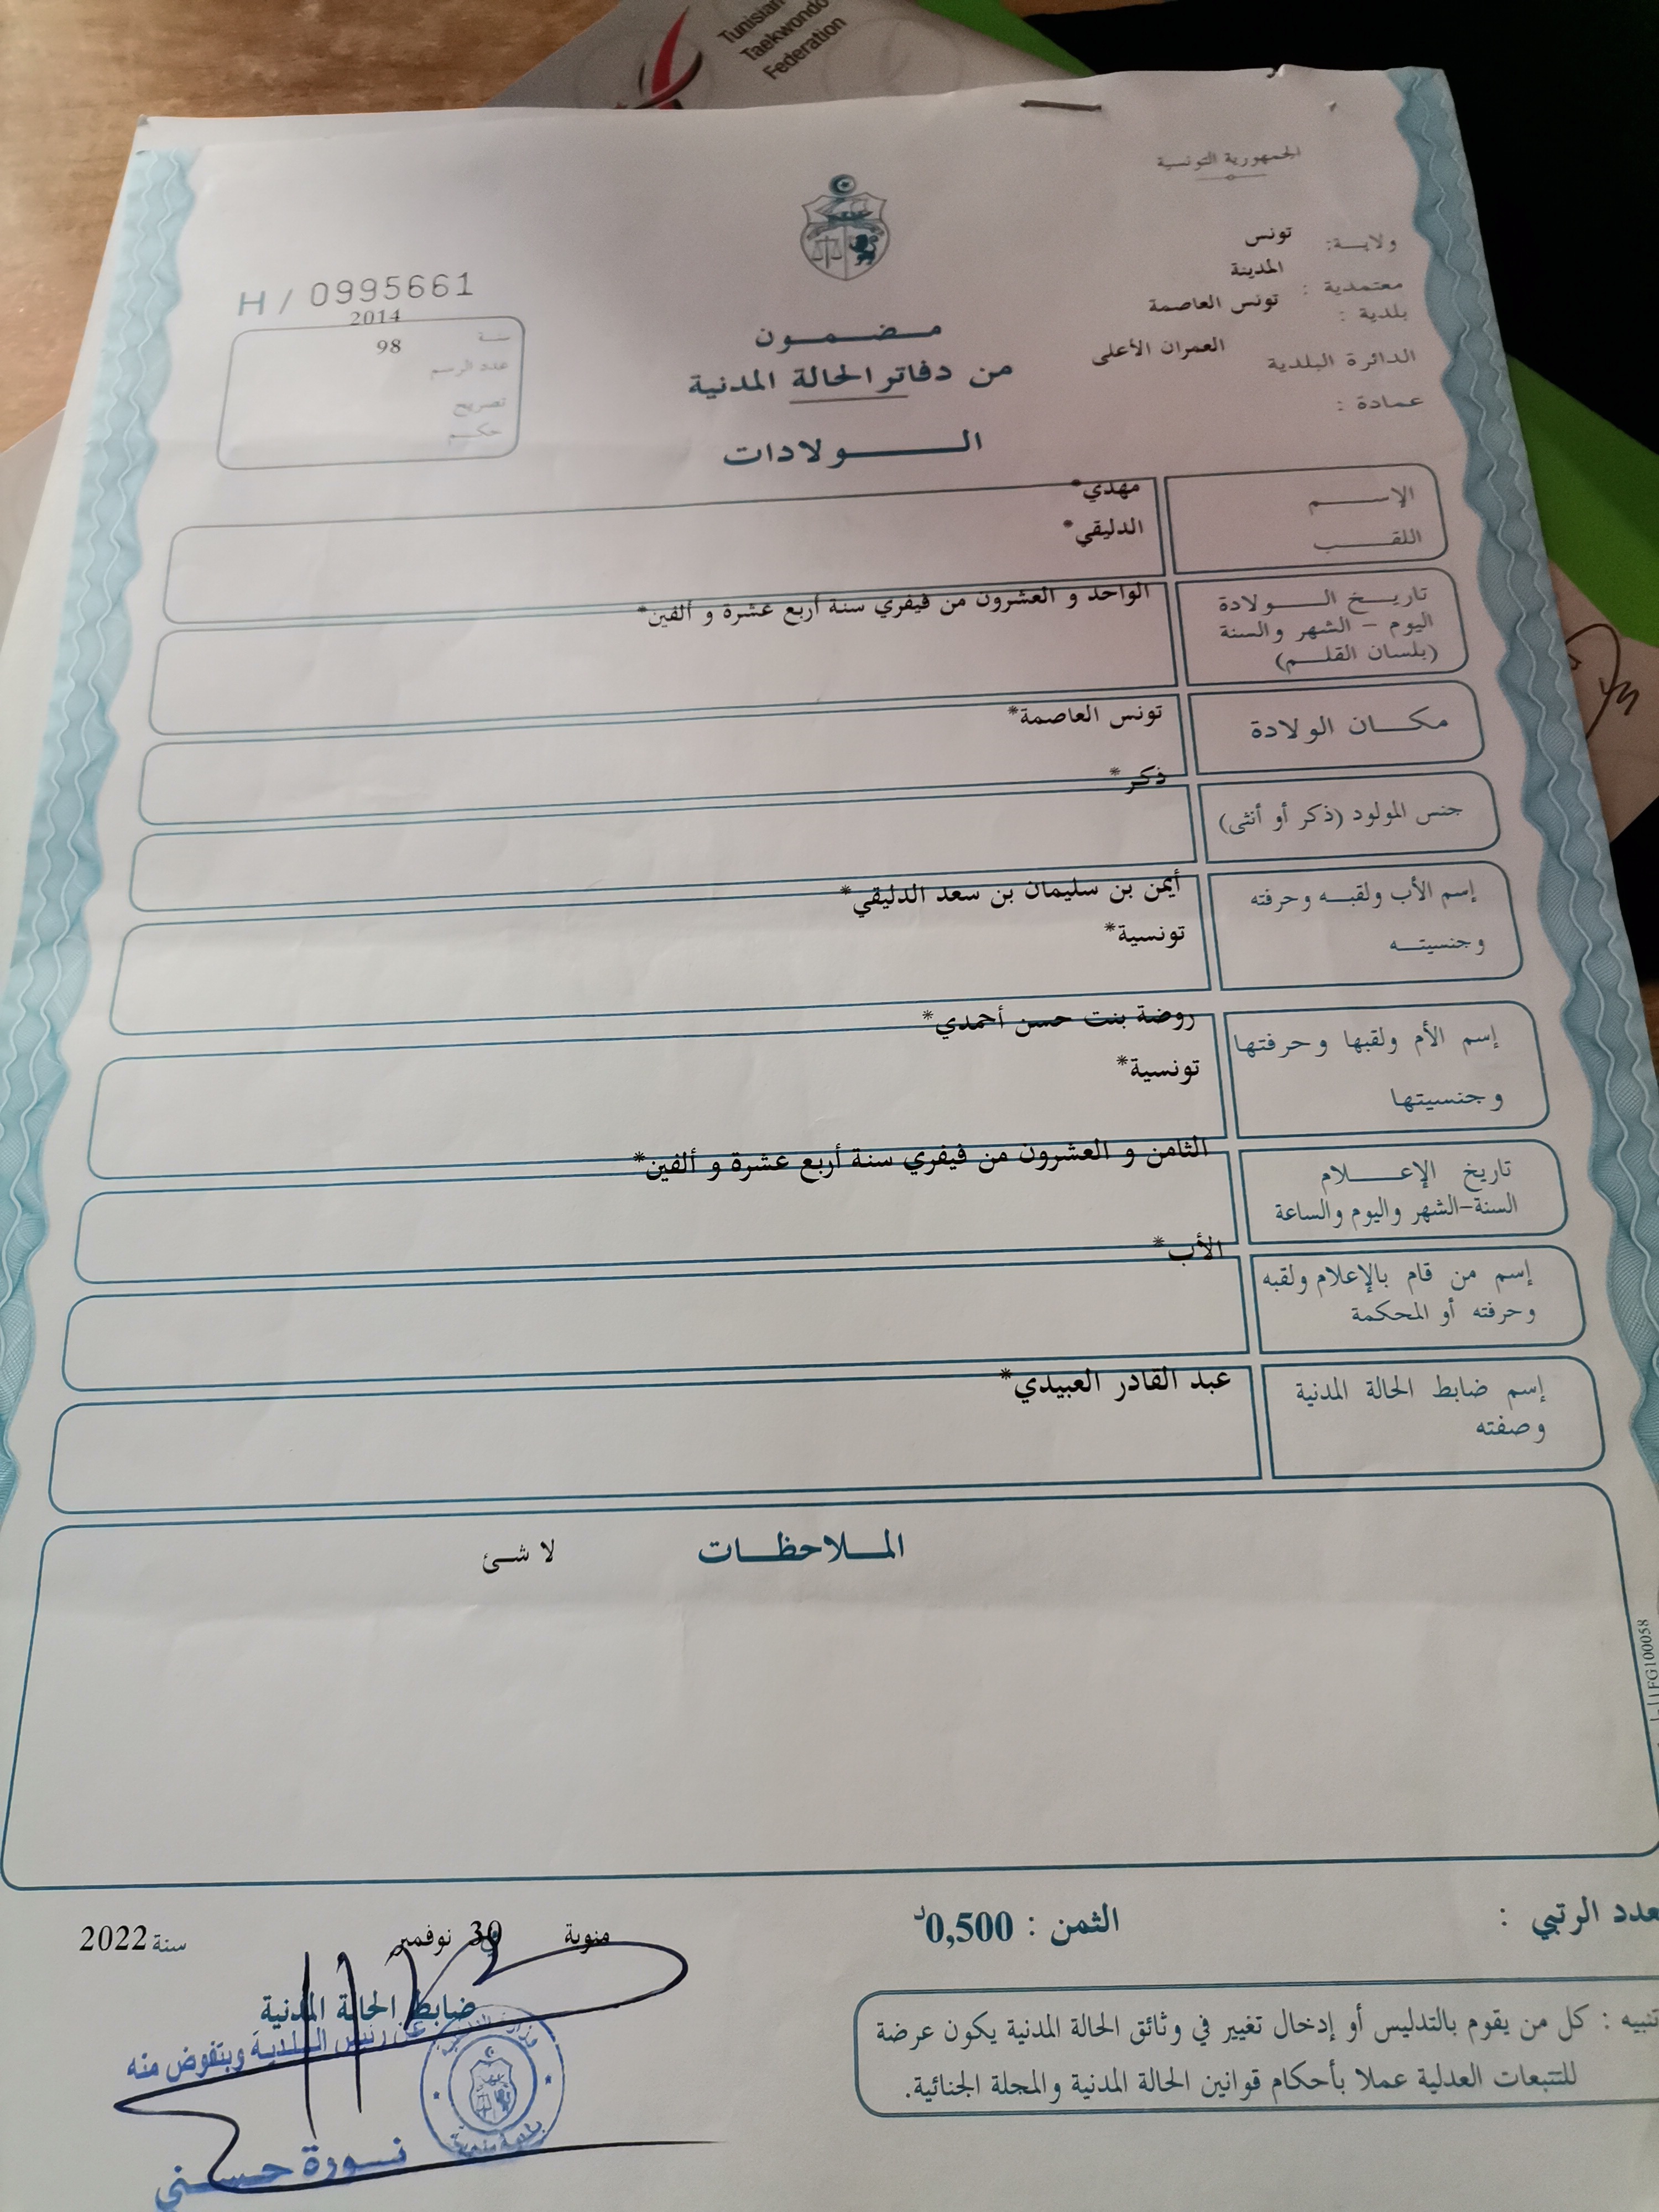 Tunisian
Taekwondo
Federation
الجمهورية التونسية
ولايـــة: تونس
معتمدية : المدينة
بلدية : تونس العاصمة
الدائرة البلدية العمران الأعلى
عمادة :
H / 0995661
سنة 2014
عدد الرسم 98
تصريح
حكـــم
مـــضـــمـــون
من دفاتر الحالة المدنية
الـــــولادات
الإســـــم مهدي*
اللقـــــب الدليقي*
تاريـــخ الـــــولادة الواحد و العشرون من فيفري سنة أربع عشرة و ألفين*
اليوم - الشهر والسنة
(بلسان القلـــم)
مكـــان الولادة تونس العاصمة*
جنس المولود (ذكر أو أنثى) ذكر*
إسم الأب ولقبـــه وحرفته أيمن بن سليمان بن سعد الدليقي*
وجنسيتـــه تونسية*
إسم الأم ولقبها وحرفتها روضة بنت حسن أحمدي*
وجنسيتها تونسية*
تاريخ الإعـــــلام الثامن و العشرون من فيفري سنة أربع عشرة و ألفين*
السنة-الشهر واليوم والساعة
إسم من قام بالإعلام ولقبه الأب*
وحرفته أو المحكمة
إسم ضابط الحالة المدنية عبد القادر العبيدي*
وصفته
المـــلاحظـــات لا شئ
FG100058
عدد الرتبي :
الثمن : 0,500د
منوبة 30 نوفمبر سنة 2022
ضابط الحالة المدنية
عن رئيس البلدية وبتفوض منه
نـــورة حـــسني
تنبيه : كل من يقوم بالتدليس أو إدخال تغيير في وثائق الحالة المدنية يكون عرضة
للتتبعات العدلية عملا بأحكام قوانين الحالة المدنية والمجلة الجنائية.